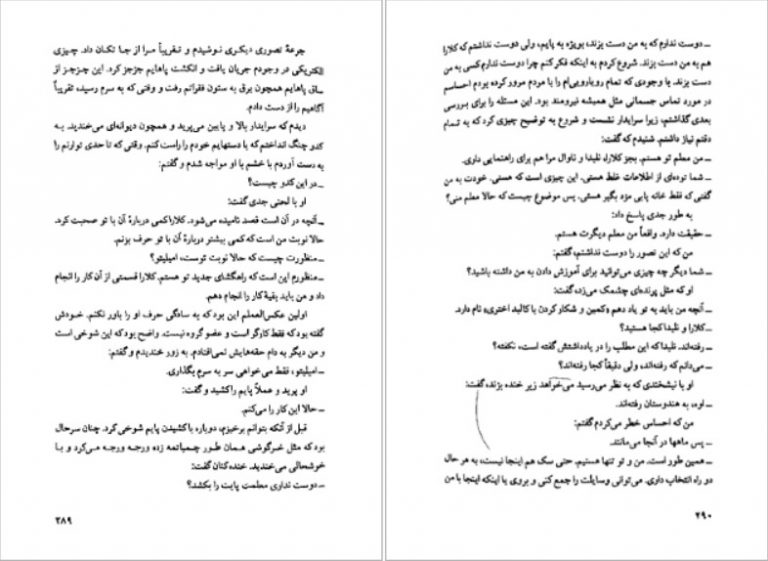 جرعهٔ تصوری دیگری نوشیدم و تقریباً مرا از جا تکان داد. چیزی
الکتریکی در وجودم جریان یافت و انگشت پاهایم جزجز کرد. این جزجز از
ساق پاهایم همچون برق به ستون فقراتم رفت و وقتی که به سرم رسید، تقریباً
آگاهیم را از دست دادم.
دیدم که سرایدار بالا و پایین می‌پرید و همچون دیوانه‌ای می‌خندید. به
کدو چنگ انداختم که با دستهایم خودم را راست کنم. وقتی که تا حدی توازنم را
به دست آوردم با خشم با او مواجه شدم و گفتم:
ـ در این کدو چیست؟
او با لحنی جدی گفت:
ـ آنچه در آن است قصد نامیده می‌شود. کلارا کمی دربارهٔ آن با تو صحبت کرد.
حالا نوبت من است که کمی بیشتر دربارهٔ آن با تو حرف بزنم.
ـ منظورت چیست که حالا نوبت توست، امیلیتو؟
ـ منظورم این است که راهگشای جدید تو هستم. کلارا قسمتی از آن کار را انجام
داد و من باید بقیهٔ کار را انجام دهم.
اولین عکس‌العملم این بود که به سادگی حرف او را باور نکنم. خودش
گفته بود که فقط کارگر است و عضو گروه نیست. واضح بود که این شوخی است
و من دیگر به دام حقه‌هایش نمی‌افتادم. به زور خندیدم و گفتم:
ـ امیلیتو، فقط می‌خواهی سر به سرم بگذاری.
او پرید و عملاً پایم را کشید و گفت:
ـ حالا این کار را می‌کنم.
قبل از آنکه بتوانم برخیزم، دوباره با کشیدن پایم شوخی کرد. چنان سرحال
بود که مثل خرگوشی همان طور چمباتمه زده ورجه ورجه می‌کرد و با
خوشحالی می‌خندید. خنده‌کنان گفت:
ـ دوست نداری معلمت پایت را بکشد؟
۲۸۹
ـ دوست ندارم که به من دست بزند، بویژه به پایم، ولی دوست نداشتم که کلارا
هم به من دست بزند. شروع کردم به اینکه فکر کنم چرا دوست ندارم کسی به من
دست بزند. با وجودی که تمام رویارویی‌ام را با مردم مرور کرده بودم احساسم
در مورد تماس جسمانی مثل همیشه نیرومند بود. این مسئله را برای بررسی
بعدی گذاشتم، زیرا سرایدار نشست و شروع به توضیح چیزی کرد که به تمام
دقتم نیاز داشتم. شنیدم که گفت:
ـ من معلم تو هستم. بجز کلارا، نلیدا و ناوال مرا هم برای راهنمایی داری.
ـ شما توده‌ای از اطلاعات غلط هستی. این چیزی است که هستی. خودت به من
گفتی که فقط خانه پایی مزد بگیر هستی. پس موضوع چیست که حالا معلم منی؟
به طور جدی پاسخ داد:
ـ حقیقت دارد. واقعاً من معلم دیگرت هستم.
من که این تصور را دوست نداشتم، گفتم:
ـ شما دیگر چه چیزی می‌توانید برای آموزش دادن به من داشته باشید؟
او که مثل پرنده‌ای چشمک می‌زد، گفت:
ـ آنچه من باید به تو یاد دهم «کمین و شکار کردن با کالبد اختری» نام دارد.
ـ کلارا و نلیدا کجا هستید؟
ـ رفته‌اند. نلیدا که این مطلب را در یادداشتش گفته است، نکفته؟
ـ می‌دانم که رفته‌اند، ولی دقیقاً کجا رفته‌اند؟
او با نیشخندی که به نظر می‌رسید می‌خواهد زیر خنده بزند، گفت:
ـ اوه، به هندوستان رفته‌اند.
من که احساس خطر می‌کردم گفتم:
ـ پس ماهها در آنجا می‌مانند.
ـ همین طور است. من و تو تنها هستیم. حتی سگ هم اینجا نیست، به هر حال
دو راه انتخاب داری. می‌توانی وسایلت را جمع کنی و بروی یا اینکه اینجا با من
۲۹۰